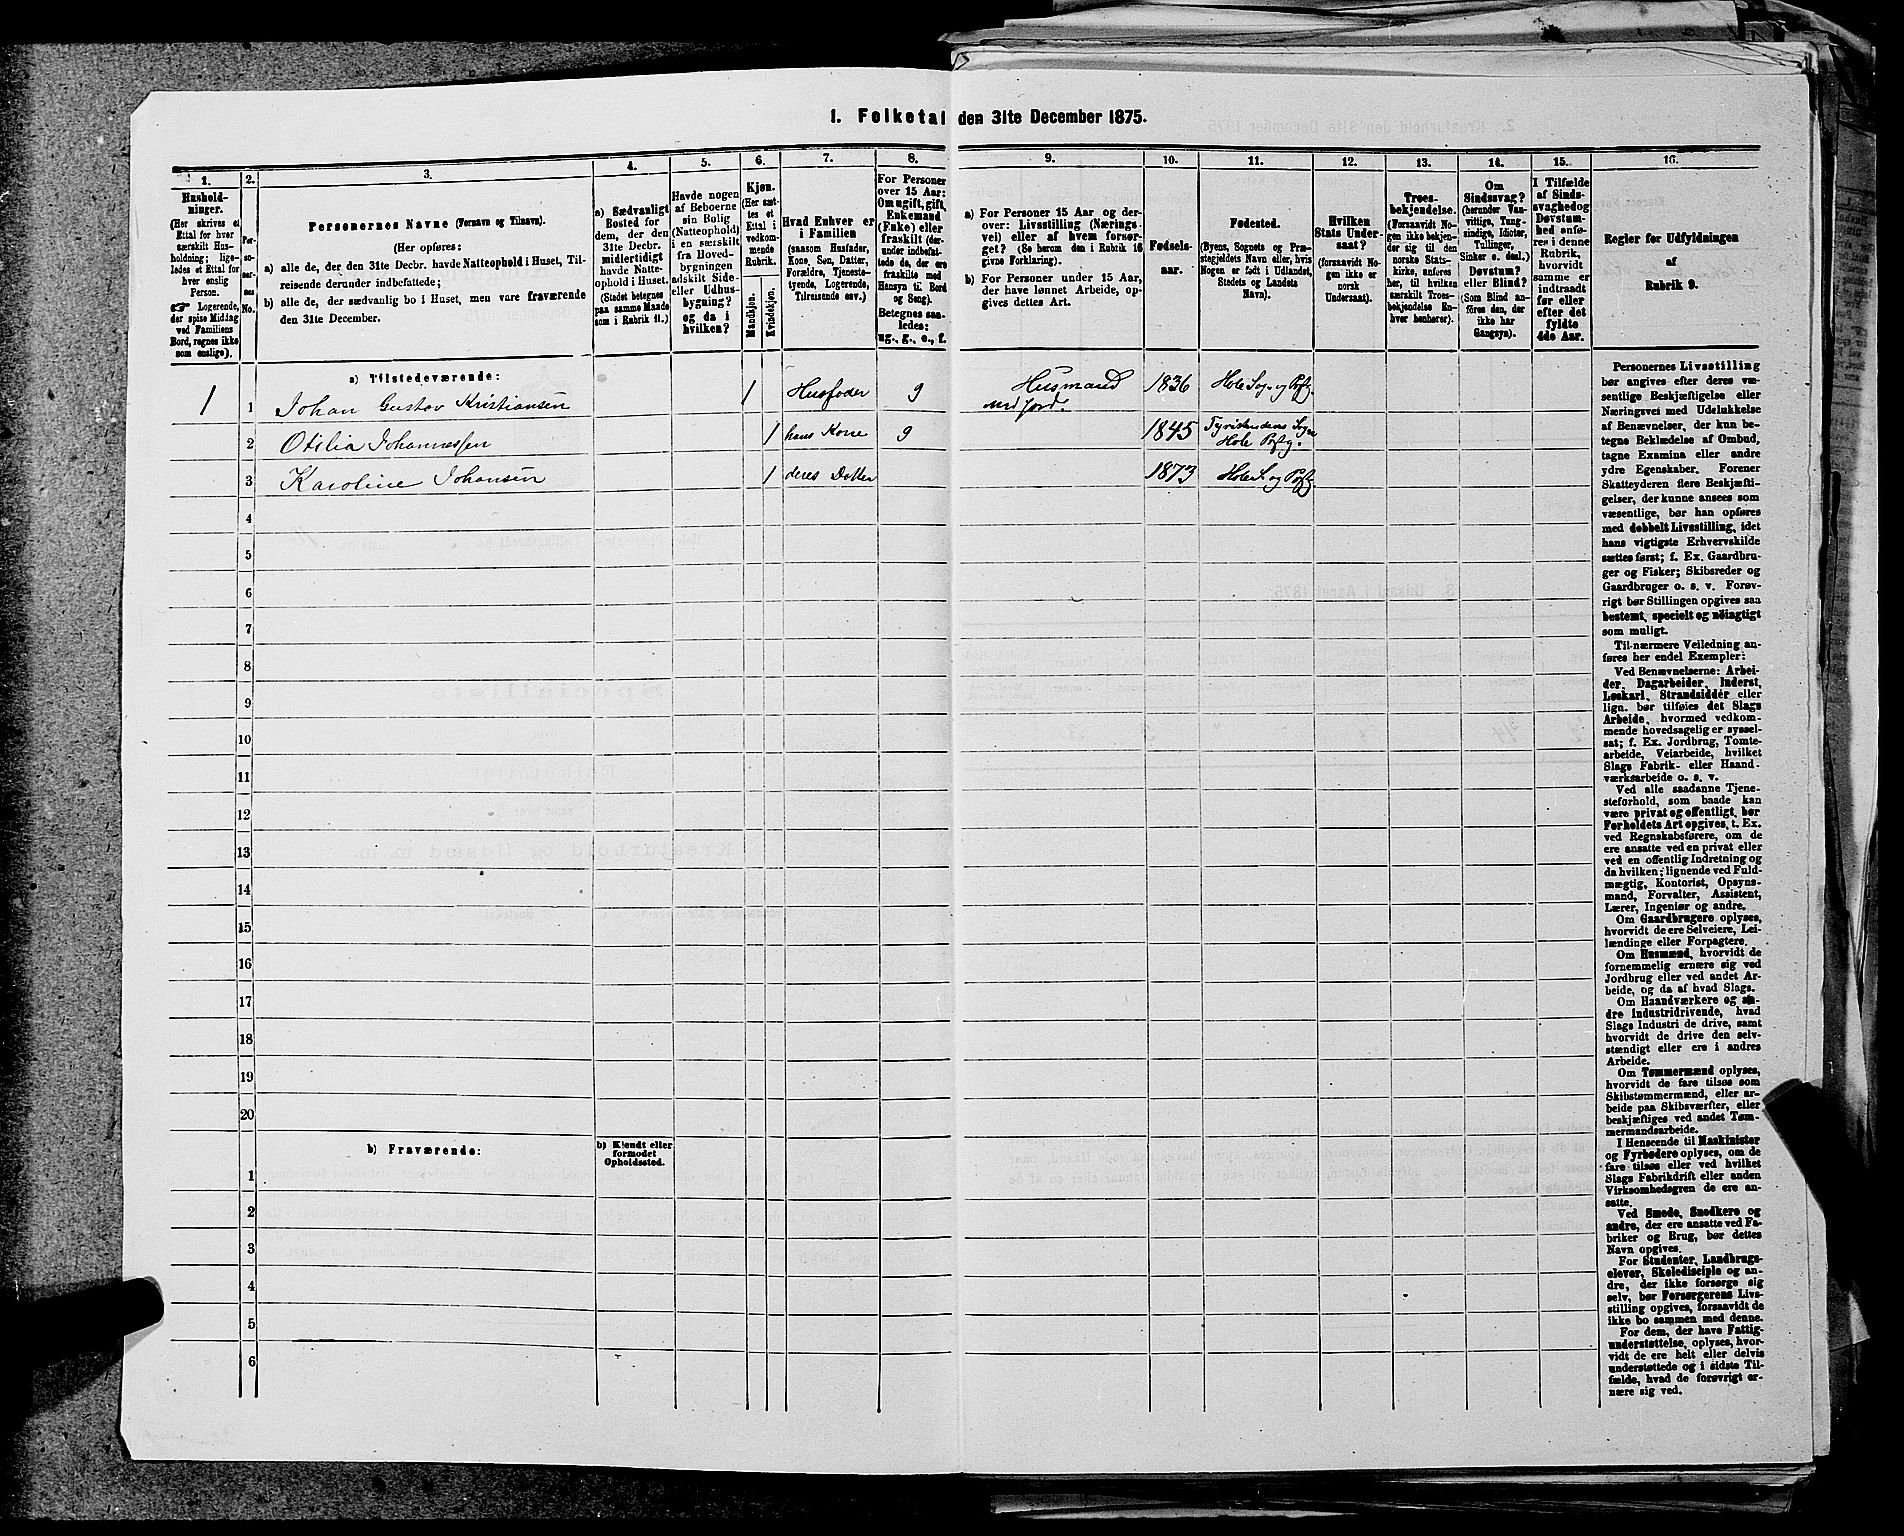 1. Folketal den 31te December 1875.
1.
2.
3.
4.
5.
6.
7.
8.
9.
10.
11.
12.
13.
14.
15.
16.
Hushold-
ninger.
(Her skrives et
Ettal for hver
særskilt Hus-
holdning; lige-
ledes et Ettal for
hver enslig
Person.
☞ Logerende,
der spise Middag
ved Familiens
Bord, regnes ikke
som enslige).
Per-
so-
ner-
nes
No.
Personernes Navne (Fornavn og Tilnavn).
(Her opføres:
a) alle de, der den 31te Decbr. havde Natteophold i Huset, Til-
reisende derunder indbefattede;
b) alle de, der sædvanlig bo i Huset, men vare fraværende
den 31te December.
a) Sædvanligt
Bosted for
dem, der den
31te Decbr.
midlertidigt
havde Natte-
ophold i Huset.
(Stedet betegnes
paa samme Maade
som i Rubrik 11.)
Havde nogen
af Beboerne
sin Bolig
(Natteophold)
i en særskilt
fra Hoved-
bygningen
adskilt Side-
eller Udhus-
bygning?
og da i
hvilken?
Kjøn.
(Her sæt-
tes et
Ettal i
vedkom-
mende
Rubrik.
Mandkjøn.
Kvindekjøn.
Hvad Enhver er
i Familien
(saasom Husfader,
Kone, Søn, Datter,
Forældre, Tjeneste-
tyende, Logerende,
Tilreisende osv.)
For Personer
over 15 Aar:
Om ugift, gift,
Enkemand
(Enke) eller
fraskilt (der-
under indbefat-
tede de, der ere
fraskilte med
Hensyn til Bord
og Seng).
Betegnes saa-
ledes:
ug., g., e., f.
a) For Personer 15 Aar og der-
over: Livsstilling (Nærings-
vei) eller af hvem forsør-
get? (Se herom den i Rubrik 16
givne Forklaring).
b) For Personer under 15 Aar,
der have lønnet Arbeide, op-
gives dettes Art.
Fødsels-
aar.
Fødested.
(Byens, Sognets og Præ-
stegjeldets Navn eller, hvis
Nogen er født i Udlandet,
Stedets og Landets
Navn).
Hvilken
Stats Under-
saat?
(forsaavidt No-
gen ikke er
norsk
Undersaat).
Troes-
bekjendelse.
(Forsaavidt No-
gen ikke bekjen-
der sig til den
norske Stats-
kirke, anføres
her, til hvilken
særskilt Troes-
bekjendelse En-
hver henhører).
Om
Sindssvag?
(herunder Van-
vittige, Tung-
sindige, Idioter,
Tullinger,
Sinker o. desl.)
Døvstum?
eller Blind?
(Som Blind an-
føres den, der
ikke har
Gangsyn).
I Tilfælde
af Sinds-
svaghed og
Døvstum-
hed anfø-
res i denne
Rubrik,
hvorvidt
samme er
indtraadt
før eller
efter det
fyldte
4de Aar.
Regler for Udfyldningen
af
Rubrik 9.
a) Tilstedeværende:
1 1 Johan Gustav Kristiansen 1 Husfader g Husmand med Jord. 1836 Hole Sogn og Prstg.
2 Otilia Johannessen 1 hans Kone g 1845 Tyristrandens Sogn Hole Prstg.
3 Karoline Johansen 1 deres Datter 1873 Hole S. og Prstg.
4
5
6
7
8
9
10
11
12
13
14
15
16
17
18
19
20
b) Fraværende:
b) Kjendt eller
formodet
Opholdssted.
1
2
3
4
5
6
Personernes Livsstilling
bør angives efter deres væ-
sentlige Beskjæftigelse eller
Næringsvei med Udelukkelse
af Benævnelser, der kun be-
tegne Beklædelse af Ombud,
tagne Examina eller andre
ydre Egenskaber. Forener
Skatteyderen flere Beskjæfti-
gelser, der kunne ansees som
væsentlige, bør han opføres
med dobbelt Livsstilling, idet
hans vigtigste Erhvervskilde
sættes først; f. Ex. Gaardbru-
ger og Fisker; Skibsreder og
Gaardbruger o. s. v. Forøv-
rigt bør Stillingen opgives saa
bestemt, specielt og nøiagtigt
som muligt.
Til nærmere Veiledning an-
føres her endel Exempler:
Ved Benævnelserne: Arbei-
der, Dagarbeider, Inderst,
Løskarl, Strandsidder eller
lign. bør tilføies det Slags
Arbeide, hvormed vedkom-
mende hovedsagelig er syssel-
sat; f. Ex. Jordbrug, Tomte-
arbeide, Veiarbeide, hvilket
Slags Fabrik- eller Haand-
værksarbeide o. s. v.
Ved alle saadanne Tjene-
steforhold, som baade kan
være privat og offentligt, bør
Forholdets Art opgives, t. Ex.
ved Regnskabsførere, om de
ere ansatte ved en privat eller
ved en offentlig Indretning og
da hvilken; lignende ved Fuld-
mægtig, Kontorist, Opsyns-
mand, Forvalter, Assistent,
Lærer, Ingeniør og andre.
Om Gaardbrugere oplyses,
hvorvidt de ere Selveiere, Lei-
lændinge eller Forpagtere.
Om Husmænd, hvorvidt de
fornemmelig ernære sig ved
Jordbrug eller ved andet Ar-
beide, og da af hvad Slags.
Om Haandværkere og an-
dre Industridrivende, hvad
Slags Industri de drive, samt
hvorvidt de drive den selv-
stændigt eller ere i andres
Arbeide.
Om Tømmermænd oplyses,
hvorvidt de fare tilsøs som
Skibstømmermænd, eller ar-
beide paa Skibsværfter, eller
beskjæftiges ved andet Tøm-
mermandsarbeide.
I Henseende til Maskinister
og Fyrbødere oplyses, om de
fare tilsøs eller ved hvilket
Slags Fabrikdrift eller anden
Virksomhedsgren de ere an-
satte.
Ved Smede, Snedkere og
andre, der ere ansatte ved Fa-
briker og Brug, bør dettes
Navn opgives.
For Studenter, Landbrugs-
elever, Skoledisciple og an-
dre, der ikke forsørge sig
selv, bør Forsørgerens Livs-
stilling opgives, forsaavidt de
ikke bo sammen med denne.
For dem, der have Fattig-
understøttelse, oplyses, hvor-
vidt de ere helt eller delvis
understøttede og i sidste Til-
fælde, hvad de forøvrigt er-
nære sig ved.